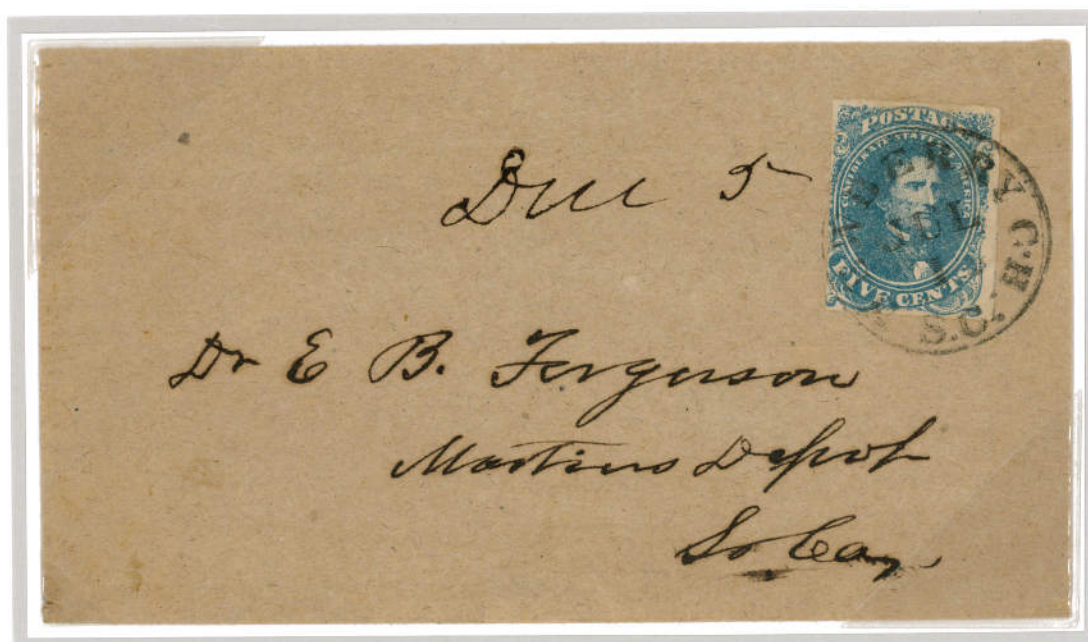 Due 5
POSTAG
CONFEDERATE STATES OF AMERICA
FIVE CENTS
BERRY C.H.
JUL
S.C.
Dr E B. Ferguson
Martins Depot
So Car